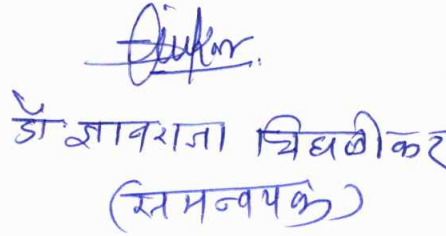 डॉ ज्ञानराजा चिघळीकर
(समन्वयक)